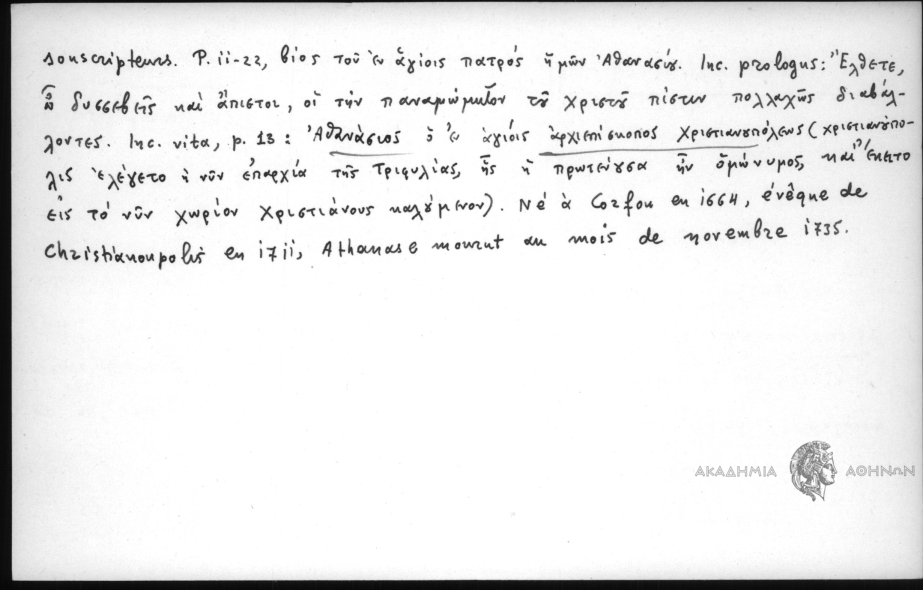 souscripteurs. P. 11-22, βίος τοῦ ἐν ἁγίοις πατρός ἡμῶν Ἀθανασίου. Inc. prologus: Ἔλθετε,
ὦ δυσσεβεῖς καὶ ἄπιστοι, οἱ τὴν παναμώμητον τοῦ Χριστοῦ πίστιν πολλαχῶς διαβάλ-
λοντες. Inc. vita, p. 13: Ἀθανάσιος ὁ ἐν ἁγίοις ἀρχιεπίσκοπος Χριστιανουπόλεως (Χριστιανούπο-
λις ἐλέγετο ἡ νῦν ἐπαρχία τῆς Τριφυλίας, ἧς ἡ πρωτεύουσα ἦν ὁμώνυμος, καὶ ἔκειτο
εἰς τὸ νῦν χωρίον Χριστιάνους καλούμενον). Né à Corfou en 1664, évêque de
Christianoupolis en 1711, Athanase mourut au mois de novembre 1735.
ΑΚΑΔΗΜΙΑ ΑΘΗΝΩΝ